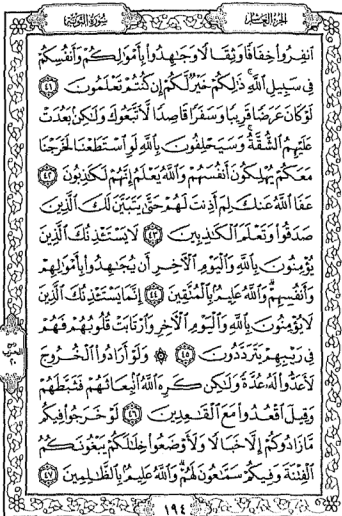 الجزء العاشر سورة التوبة
انفِرُوا خِفَافًا وَثِقَالًا وَجَاهِدُوا بِأَمْوَالِكُمْ وَأَنفُسِكُمْ
فِي سَبِيلِ اللَّهِ ذَلِكُمْ خَيْرٌ لَّكُمْ إِن كُنتُمْ تَعْلَمُونَ ٤١
لَوْ كَانَ عَرَضًا قَرِيبًا وَسَفَرًا قَاصِدًا لَّاتَّبَعُوكَ وَلَكِن بَعُدَتْ
عَلَيْهِمُ الشُّقَّةُ وَسَيَحْلِفُونَ بِاللَّهِ لَوِ اسْتَطَعْنَا لَخَرَجْنَا
مَعَكُمْ يُهْلِكُونَ أَنفُسَهُمْ وَاللَّهُ يَعْلَمُ إِنَّهُمْ لَكَاذِبُونَ ٤٢
عَفَا اللَّهُ عَنكَ لِمَ أَذِنتَ لَهُمْ حَتَّى يَتَبَيَّنَ لَكَ الَّذِينَ
صَدَقُوا وَتَعْلَمَ الْكَاذِبِينَ ٤٣ لَا يَسْتَأْذِنُكَ الَّذِينَ
يُؤْمِنُونَ بِاللَّهِ وَالْيَوْمِ الْآخِرِ أَن يُجَاهِدُوا بِأَمْوَالِهِمْ
وَأَنفُسِهِمْ وَاللَّهُ عَلِيمٌ بِالْمُتَّقِينَ ٤٤ إِنَّمَا يَسْتَأْذِنُكَ الَّذِينَ
لَا يُؤْمِنُونَ بِاللَّهِ وَالْيَوْمِ الْآخِرِ وَارْتَابَتْ قُلُوبُهُمْ فَهُمْ
فِي رَيْبِهِمْ يَتَرَدَّدُونَ ٤٥ ۞ وَلَوْ أَرَادُوا الْخُرُوجَ
لَأَعَدُّوا لَهُ عُدَّةً وَلَكِن كَرِهَ اللَّهُ انبِعَاثَهُمْ فَثَبَّطَهُمْ
وَقِيلَ اقْعُدُوا مَعَ الْقَاعِدِينَ ٤٦ لَوْ خَرَجُوا فِيكُم
مَّا زَادُوكُمْ إِلَّا خَبَالًا وَلَأَوْضَعُوا خِلَالَكُمْ يَبْغُونَكُمُ
الْفِتْنَةَ وَفِيكُمْ سَمَّاعُونَ لَهُمْ وَاللَّهُ عَلِيمٌ بِالظَّالِمِينَ ٤٧
١٩٤